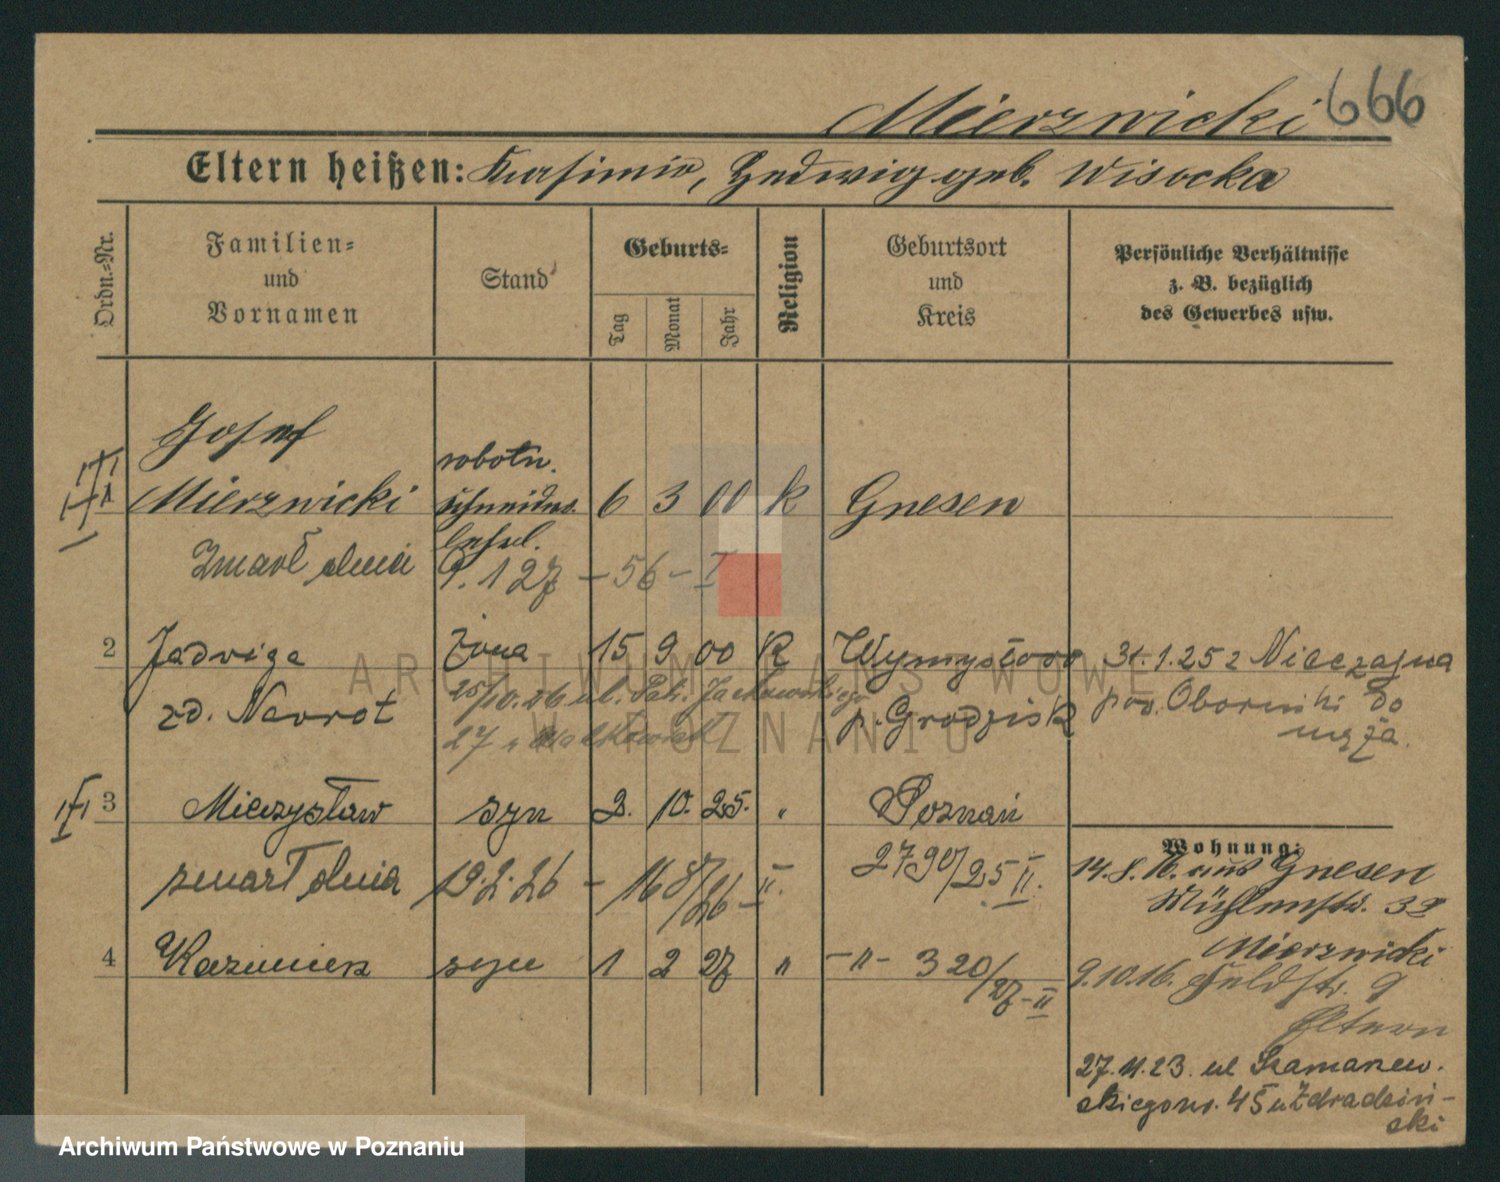 Mierzwicki 666
Eltern heißen: Kasimir, Hedwig geb. Wisocka
Ordn.-Nr.
Familien-
und
Vornamen
Stand
Geburts-
Tag
Monat
Jahr
Religion
Geburtsort
und
Kreis
Persönliche Verhältnisse
z. B. bezüglich
des Gewerbes usw.
Josef
robotn.
1 Mierzwicki schneider 6 3 00 k Gnesen
lehrl.
Zmarł dnia 9.1 27 – 56 – I
2 Jadwiga żona 15 9 00 K Wymysłowo 31.1.25 z Nieczajna
zd. Nawrot 25/10.26 ul. Patr. Jackowskiego p. Grodzisk pow. Oborniki do
27 u męża.
3 Mieczysław syn 2. 10. 25. " Poznań
2790/25 II.
zmarł dnia 19.2.26 – 168/26 – II.
4 Kazimierz syn 1 2 27 " – " – 320/27 – II
Wohnung:
14.8.16. aus Gnesen
Mühlenstr. 38
Mierzwicki
9.10.16. Feldstr. 9
Eltern
27.11.23. ul Szamarzew-
skiego nr. 45 u Zdradziń-
ski
ARCHIWUM PAŃSTWOWE
W POZNANIU
Archiwum Państwowe w Poznaniu